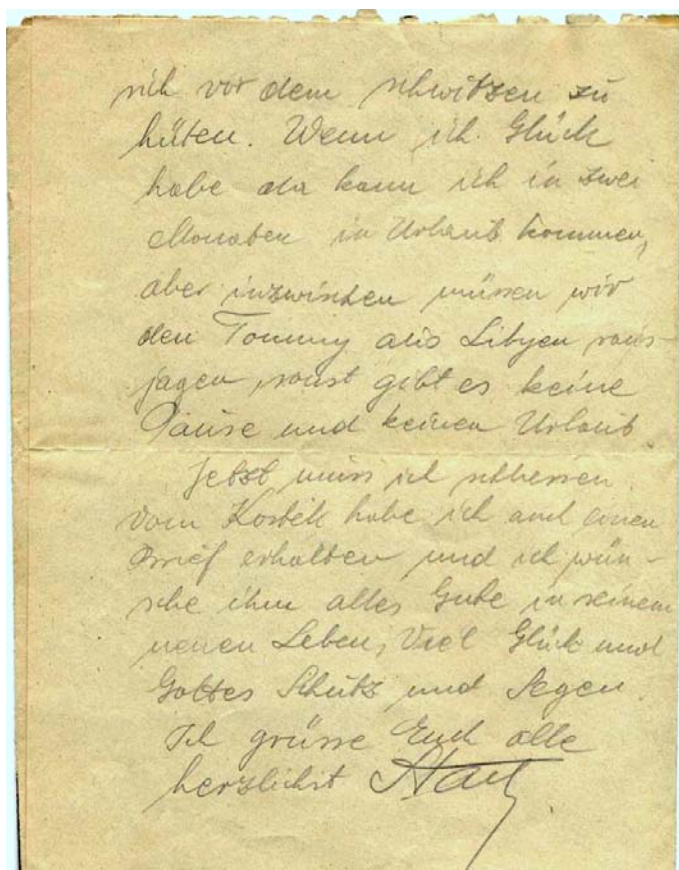 sich vor dem schwitzen zu
hüten. Wenn ich Glück
habe da kann ich in zwei
Monaten in Urlaub kommen,
aber inzwischen müssen wir
den Tommy aus Libyen raus-
jagen, sonst gibt es keine
Pause und keinen Urlaub.
Jetzt muss ich
vom habe ich auch einen
Brief erhalten und ich wün-
sche ihm alles Gute in seinem
neuen Leben, Viel Glück und
Gottes Schutz und Segen.
Ich grüsse Euch alle
herzlichst